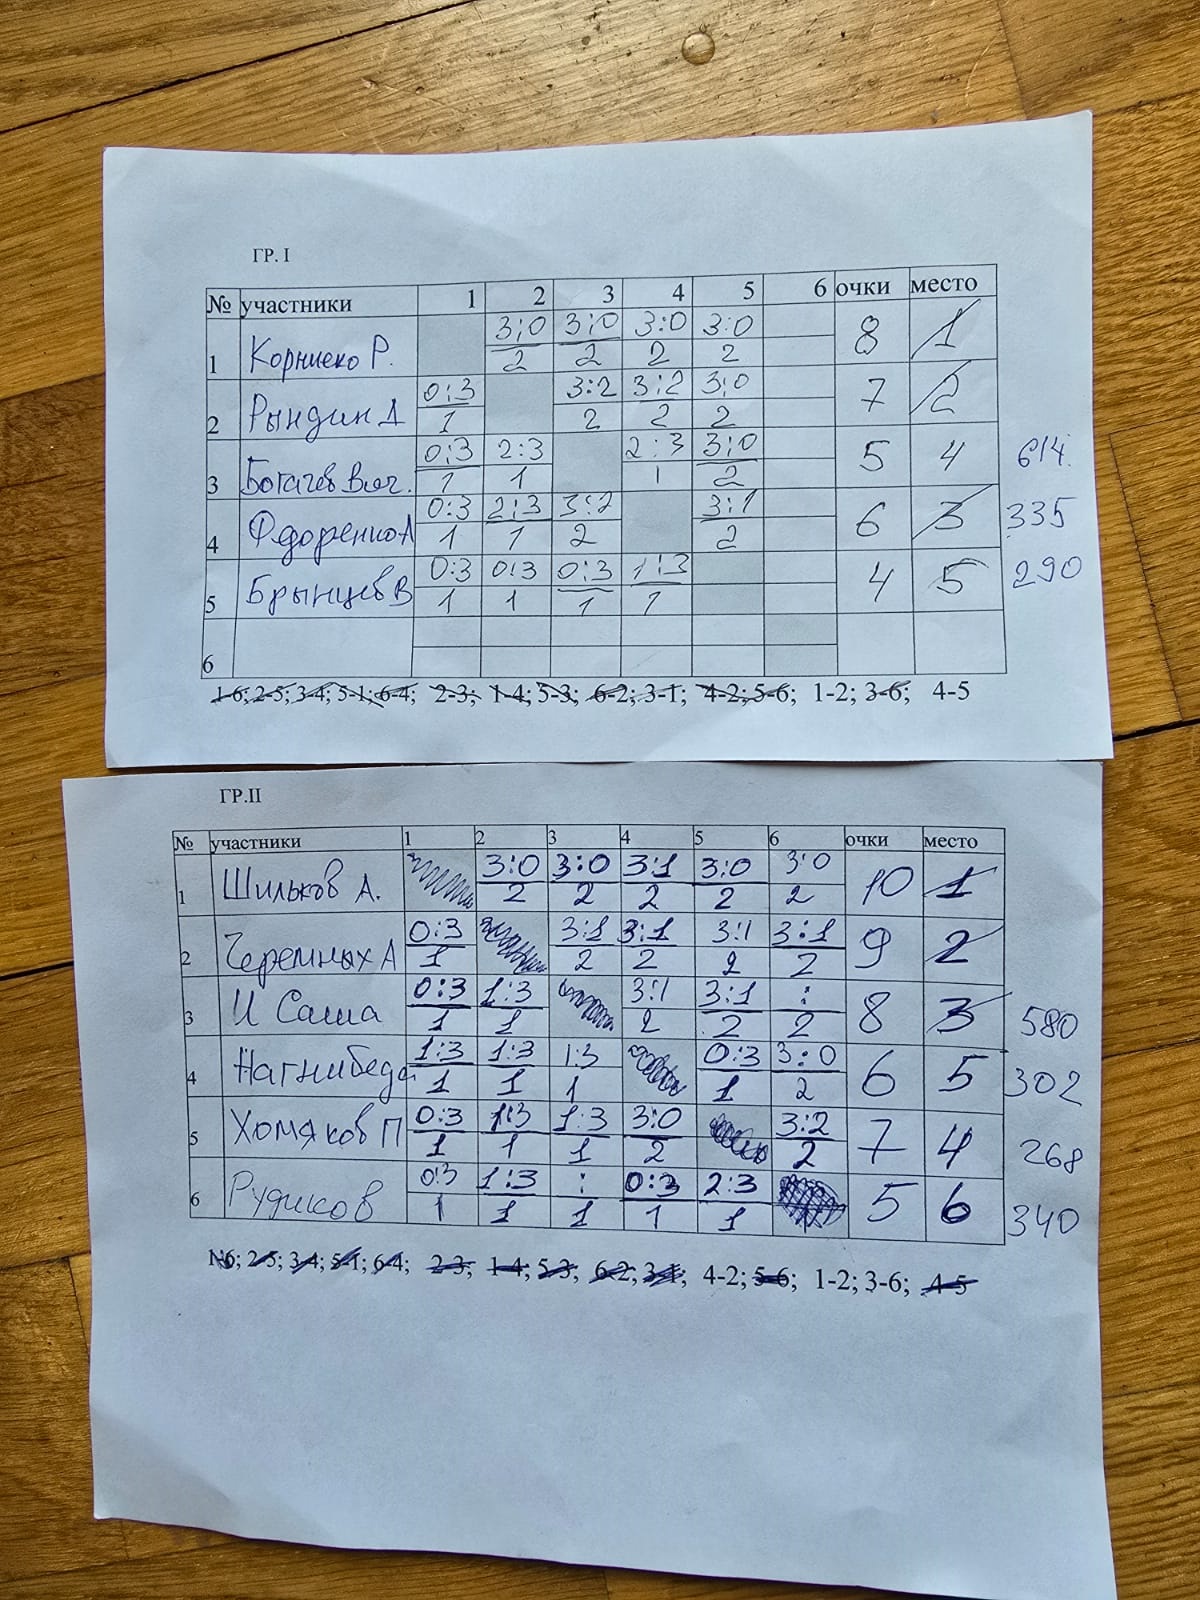 ГР. I
№ участники 1 2 3 4 5 6 очки место
3:0 3:0 3:0 3:0
1 Корниеко Р. 2 2 2 2 8 1
0:3 3:2 3:2 3:0
2 Рындин Д 1 2 2 2 7 2
0:3 2:3 2:3 3:0
3 Богачев Вяч. 1 1 1 2 5 4 614.
0:3 2:3 3:2 3:1
4 Федоренко А 1 1 2 2 6 3 335
0:3 0:3 0:3 1:3
5 Брынцев В 1 1 1 1 4 5 290
6
1-6; 2-5; 3-4; 5-1; 6-4; 2-3; 1-4; 5-3; 6-2; 3-1; 4-2; 5-6; 1-2; 3-6; 4-5
ГР.II
№ участники 1 2 3 4 5 6 очки место
3:0 3:0 3:1 3:0 3:0
1 Шильков А. 2 2 2 2 2 10 1
0:3 3:1 3:1 3:1 3:1
2 Черемных А 1 2 2 2 2 9 2
0:3 1:3 3:1 3:1 :
3 И Саша 1 1 2 2 2 8 3 580
1:3 1:3 1:3 0:3 3:0
4 Нагнибеда 1 1 1 1 2 6 5 302
0:3 1:3 1:3 3:0 3:2
5 Хомяков П 1 1 1 2 2 7 4 268
0:3 1:3 : 0:3 2:3
6 Рудиков 1 1 1 1 1 5 6 340
1-6; 2-5; 3-4; 5-1; 6-4; 2-3; 1-4; 5-3; 6-2; 3-1; 4-2; 5-6; 1-2; 3-6; 4-5